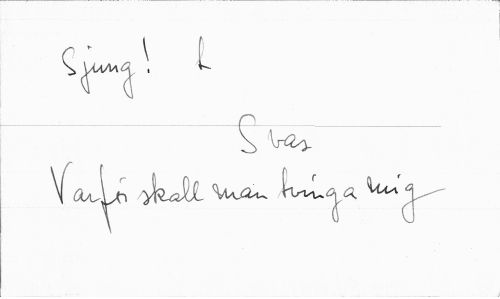 Sjung! t
Svar
Varför skall man tvinga mig